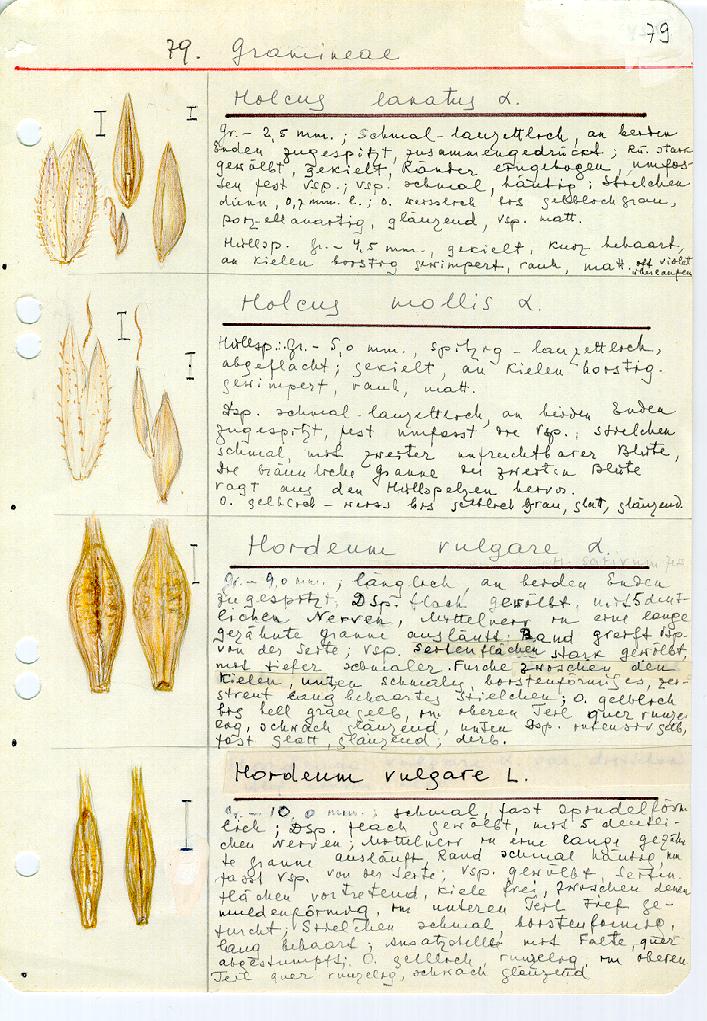 79
79. Gramineae
Holcus lanatus L.
Gr. – 2,5 mm.; schmal-lanzettlich, an beiden
Enden zugespitzt, zusammengedrückt; Rü. stark
gewölbt, gekielt, Ränder eingebogen, umfas-
sen fest Vsp.; Vsp. schmal, häutig; Stielchen
dünn, 0,7 mm. l.; O. weisslich bis gelblichgrau,
porzellanartig, glänzend, Vsp. matt.
Hüllsp. Gr. – 4,5 mm., gekielt, kurz behaart,
an Kielen borstig gewimpert, rauh, matt. oft violett
überlaufen
Holcus mollis L.
Hüllsp.: Gr. – 5,0 mm., spitzig – lanzettlich,
abgeflacht; gekielt, an Kielen borstig
gewimpert, rauh, matt.
Dsp. schmal-lanzettlich, an beiden Enden
zugespitzt, fest umfasst die Vsp.; Stielchen
schmal, mit zweiter unfruchtbarer Blüte,
die bräunliche Granne der zweiten Blüte
ragt aus den Hüllspelzen hervor.
O. gelblich – weiss bis gelblich grau, glatt, glänzend.
Hordeum vulgare L.
H. sativum
Gr. – 9,0 mm.; länglich, an beiden Enden
zugespitzt; Dsp. flach gewölbt, mit 5 deut-
lichen Nerven, Mittelnerv in eine lange
gezähnte Granne ausläuft; Rand greift Vsp.
von der Seite; Vsp. Seitenflächen stark gewölbt,
mit tiefer schmaler Furche zwischen den
Kielen, unten schmales, borstenförmiges, zer-
streut lang behaartes Stielchen; O. gelblich
bis hell graugelb, im oberen Teil quer runze-
lig, schwach glänzend, unten Dsp. intensiv gelb,
fast glatt, glänzend; derb.
Hordeum vulgare L.
Gr. – 10,0 mm.; schmal, fast spindelförm
lich; Dsp. flach gewölbt, mit 5 deutli-
chen Nerven; Mittelnerv in eine lange gezähn-
te Granne ausläuft, Rand schmal häutig, um
fasst Vsp. von der Seite; Vsp. gewölbt, Seiten-
flächen vortretend, Kiele frei, zwischen denen
muldenförmig, im unteren Teil tief ge-
furcht; Stielchen schmal, borstenförmig,
lang behaart; Ansatzstelle mit Falte, quer
abgestumpft; O. gelblich, runzelig, im oberen
Teil quer runzelig, schwach glänzend